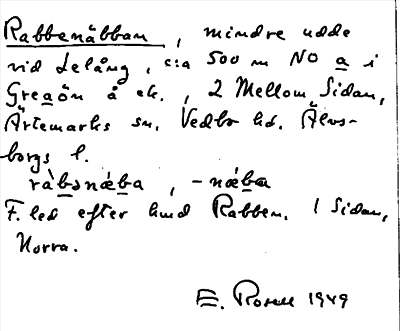 Rabbenäbban, mindre udde
vid Lelång, c:a 500 m NO a i
Greaön å ek., 2 Mellom Sidan,
Ärtemarks sn. Vedbo hd. Älvs-
borgs l.
ràbənæ̀ba, -næ̀ba
F. led efter hmd Rabben. 1 Sidan,
Norra.
E. 1949